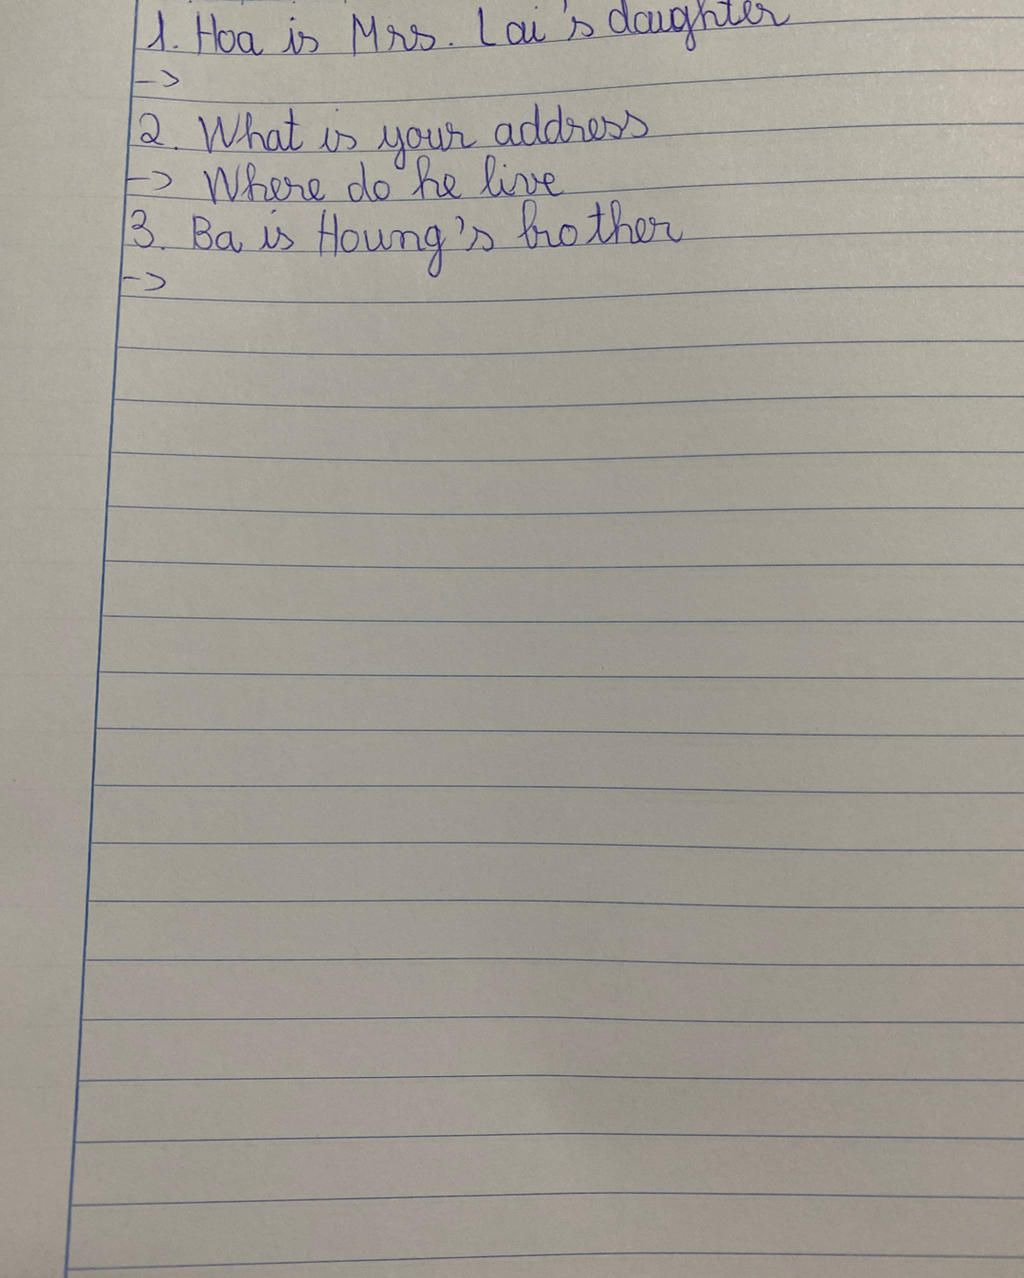 1. Hoa is Mrs. Lai's daughter
->
2. What is your address
-> Where do he live
3. Ba is Houng's brother
->